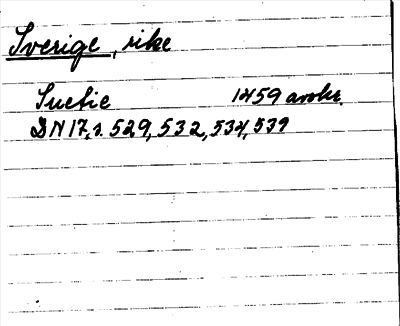 Sverige, rike
Suetie 1459 avskr.
DN 17, s. 529, 532, 534, 539